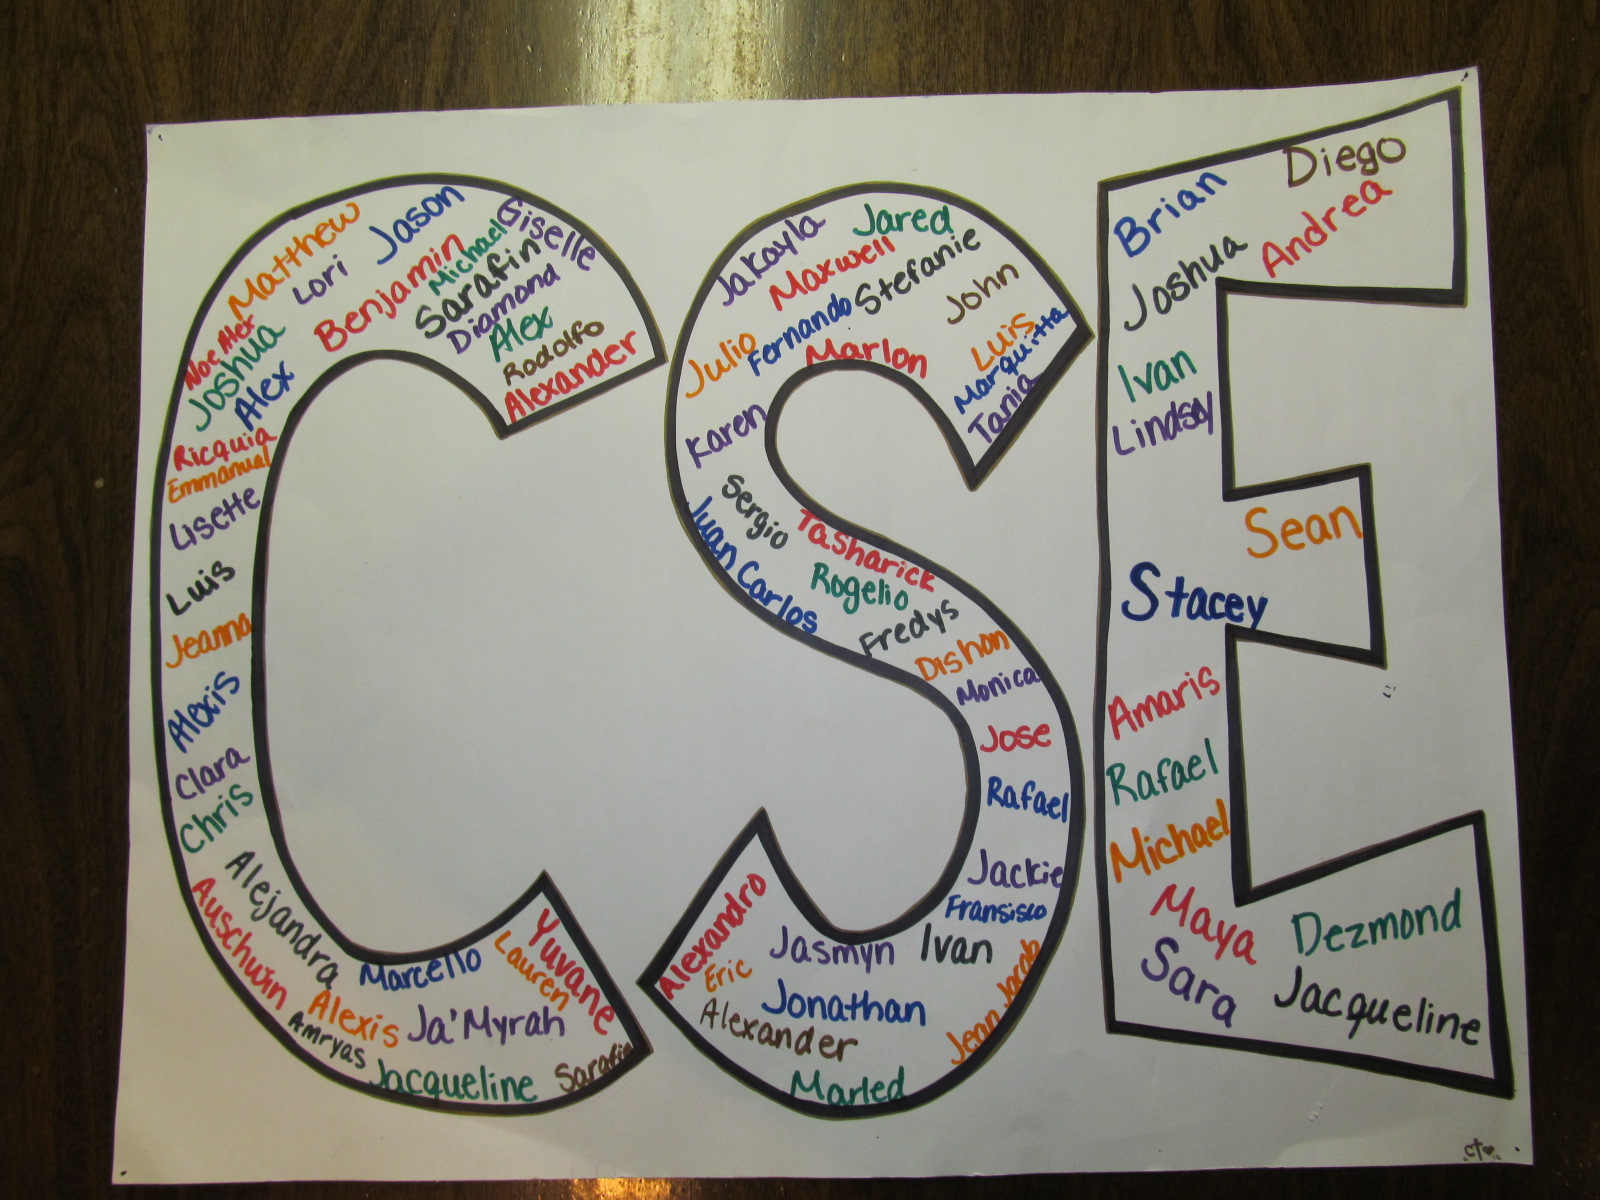 CSE
Matthew
Jason
Giselle
Lori
Benjamin
Michael
Sarafin
Diamond
Alex
Rodolfo
Alexander
Noe Alex
Joshua
Alex
Ricquia
Emmanual
Lisette
Luis
Jeanna
Alexis
Clara
Chris
Alejandra
Auschwin
Marcello
Lauren
Yuvane
Alexis
Ja'Myrah
Amryas
Jacqueline
Sarafin
Jakayla
Jared
Maxwell
Stefanie
Fernando
John
Julio
Marlon
Luis
Marquitta
Tania
Karen
Sergio
Juan Carlos
Tasharick
Rogelio
Fredys
Dishon
Monica
Jose
Rafael
Jackie
Fransisco
Alexandro
Jasmyn
Ivan
Eric
Jonathan
Jean Jacob
Alexander
Marled
Diego
Brian
Andrea
Joshua
Ivan
Lindsey
Sean
Stacey
Amaris
Rafael
Michael
Maya
Dezmond
Sara
Jacqueline